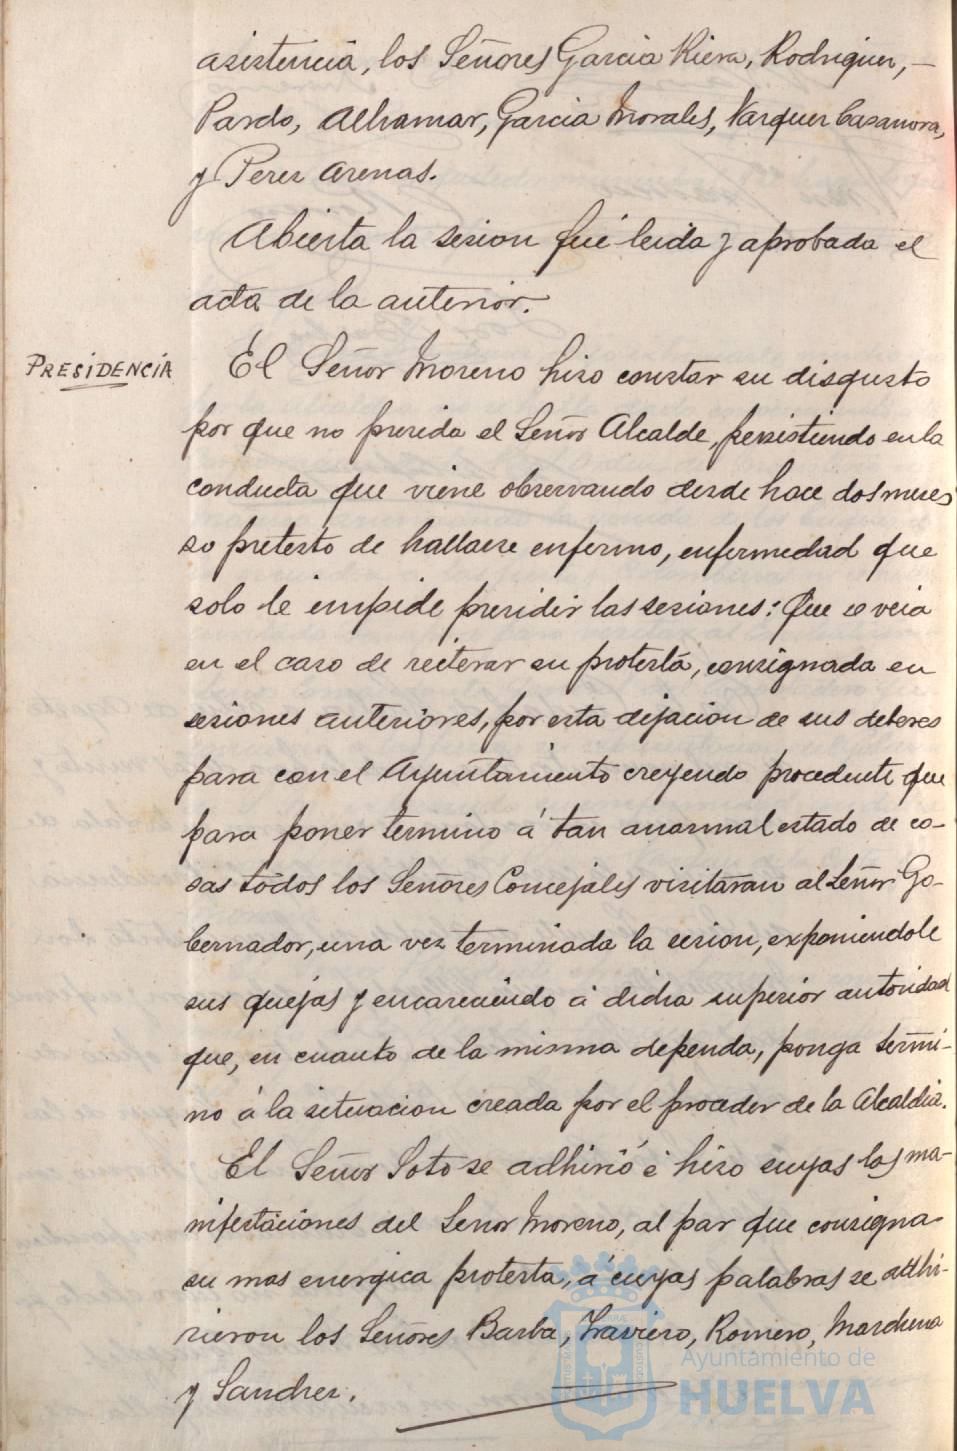 asistencia, los Señores Garcia Riera, Rodriguez, —
Pardo, Alhamar, Garcia Morales, Vazquez Casanova,
y Perez Arenas.
Abierta la sesion fué leida y aprobada el
acta de la anterior.
PRESIDENCIA
El Señor Moreno hizo constar su disgusto
por que no presida el Señor Alcalde, persistiendo en la
conducta que viene observando desde hace dos meses
so pretesto de hallarse enfermo, enfermedad que
solo le impide presidir las sesiones: Que se veia
en el caso de reiterar su protesta, consignada en
sesiones anteriores, por esta dejacion de sus deberes
para con el Ayuntamiento creyendo procedente que
para poner termino á tan anormal estado de co-
sas todos los Señores Concejales visitaran al Señor Go-
bernador, una vez terminada la sesion, exponiendole
sus quejas y encareciendo á dicha superior autoridad
que, en cuanto de la misma dependa, ponga termi-
no á la situacion creada por el proceder de la Alcaldia.
El Señor Soto se adhirió é hizo suyas las ma-
nifestaciones del Senor Moreno, al par que consigna
su mas energica protesta, á cuyas palabras se adhi-
rieron los Señores Barba, Traviero, Romero, Marchena
y Sanchez.
Ayuntamiento de
HUELVA